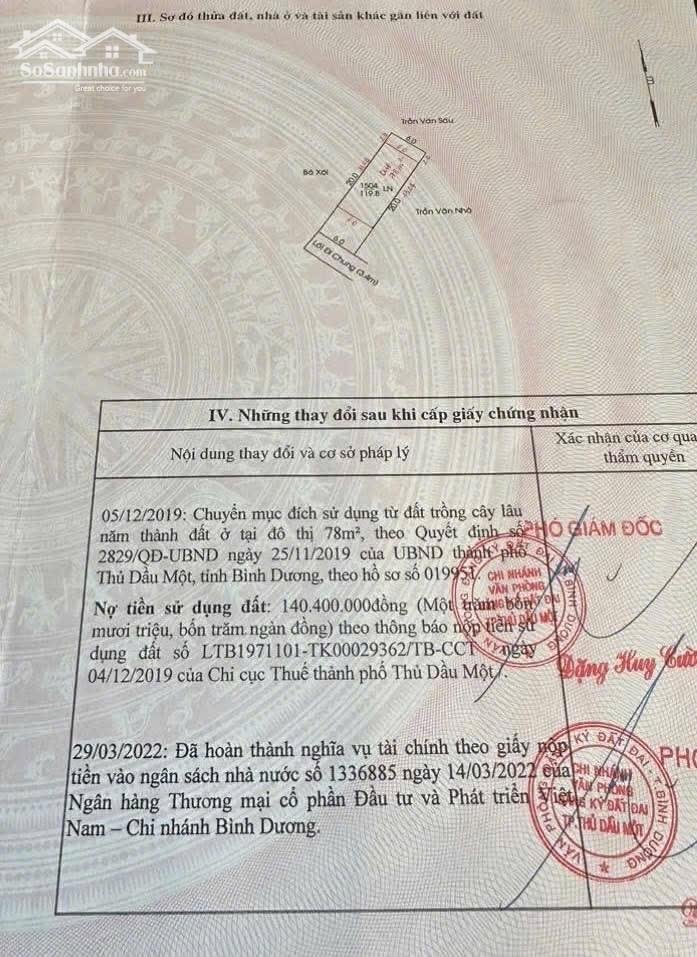 III. Sơ đồ thửa đất, nhà ở và tài sản khác gắn liền với đất
SoSanhnha.com
Great choice for you
B
Trần Văn Sáu
6.0
Bà Xôi
20.0
1504
119.8
LN
20.0
Trần Văn Nhỏ
6.0
Lối Đi Chung (3.4m)
IV. Những thay đổi sau khi cấp giấy chứng nhận
Nội dung thay đổi và cơ sở pháp lý
Xác nhận của cơ qua
thẩm quyền
05/12/2019: Chuyển mục đích sử dụng từ đất trồng cây lâu
năm thành đất ở tại đô thị 78m², theo Quyết định số
2829/QĐ-UBND ngày 25/11/2019 của UBND thành phố
Thủ Dầu Một, tỉnh Bình Dương, theo hồ sơ số 019951.
Nợ tiền sử dụng đất: 140.400.000đồng (Một trăm bốn
mươi triệu, bốn trăm ngàn đồng) theo thông báo nộp tiền sử
dụng đất số LTB1971101-TK00029362/TB-CCT ngày
04/12/2019 của Chi cục Thuế thành phố Thủ Dầu Một./.
PHÓ GIÁM ĐỐC
CHI NHÁNH
VĂN PHÒNG
ĐĂNG KÝ ĐẤT ĐAI
TP.THỦ DẦU MỘT
Đặng Huy Cườ
29/03/2022: Đã hoàn thành nghĩa vụ tài chính theo giấy nộp
tiền vào ngân sách nhà nước số 1336885 ngày 14/03/2022 của
Ngân hàng Thương mại cổ phần Đầu tư và Phát triển Việt
Nam – Chi nhánh Bình Dương.
PHÓ
VĂN PHÒNG ĐĂNG KÝ ĐẤT ĐAI - T.BÌNH DƯƠNG
CHI NHÁNH
VĂN PHÒNG
ĐĂNG KÝ ĐẤT ĐAI
TP.THỦ DẦU MỘT